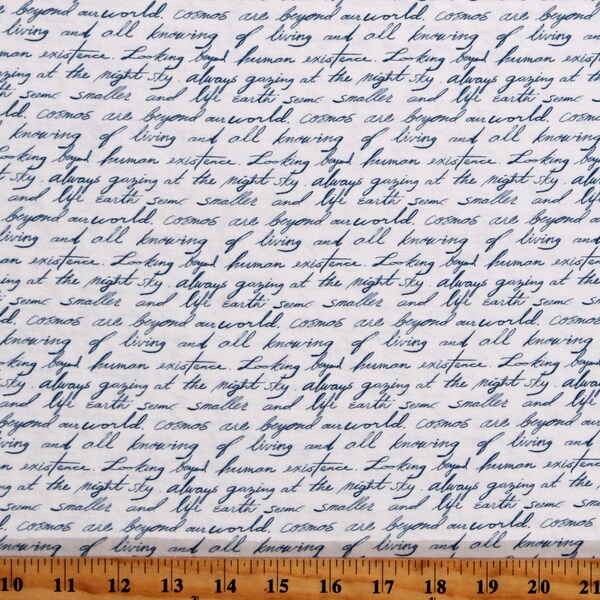 world. Cosmos are beyond our world. Cosmos are beyond
living and all knowing of living and all knowing of living an
man existence. Looking beyond human existence. Looking beyond human exist
zing at the night sky. always gazing at the night sky. always gazing
seems smaller and life Earth seems smaller and life Earth seems smal
ld. Cosmos are beyond our world. Cosmos are beyond our world. Cosm
knowing of living and all knowing of living and all knowing
Looking beyond human existence. Looking beyond human existence. Looking
ky. always gazing at the night sky. always gazing at the night sky. al
and life Earth seems smaller and life Earth seems smaller and lif
beyond our world. Cosmos are beyond our world. Cosmos are beyond a
living and all knowing of living and all knowing of living an
an existence. Looking beyond human existence. Looking beyond human existence
ing at the night sky. always gazing at the night sky. always gazing
seems smaller and life Earth seems smaller and life Earth seems s
d. Cosmos are beyond our world. Cosmos are beyond our world. Cosmos
knowing of living and all knowing of living and all knowing
oking beyond human existence. Looking beyond human existence. Looking
sky. always gazing at the night sky. always gazing at the night sky. alwa
and life Earth seems smaller and life Earth seems smaller and life
beyond our world. Cosmos are beyond our world. Cosmos are beyond our
ving and all knowing of living and all knowing of living and
n existence. Looking beyond human existence. Looking beyond human existence
ng at the night sky. always gazing at the night sky. always gazing at
seems smaller and life Earth seems smaller and life Earth seems smal
d. Cosmos are beyond our world. Cosmos are beyond our world. Cosmos
knowing of living and all knowing of living and all knowing
10 11 12 13 14 15 16 17 18 19 20 21